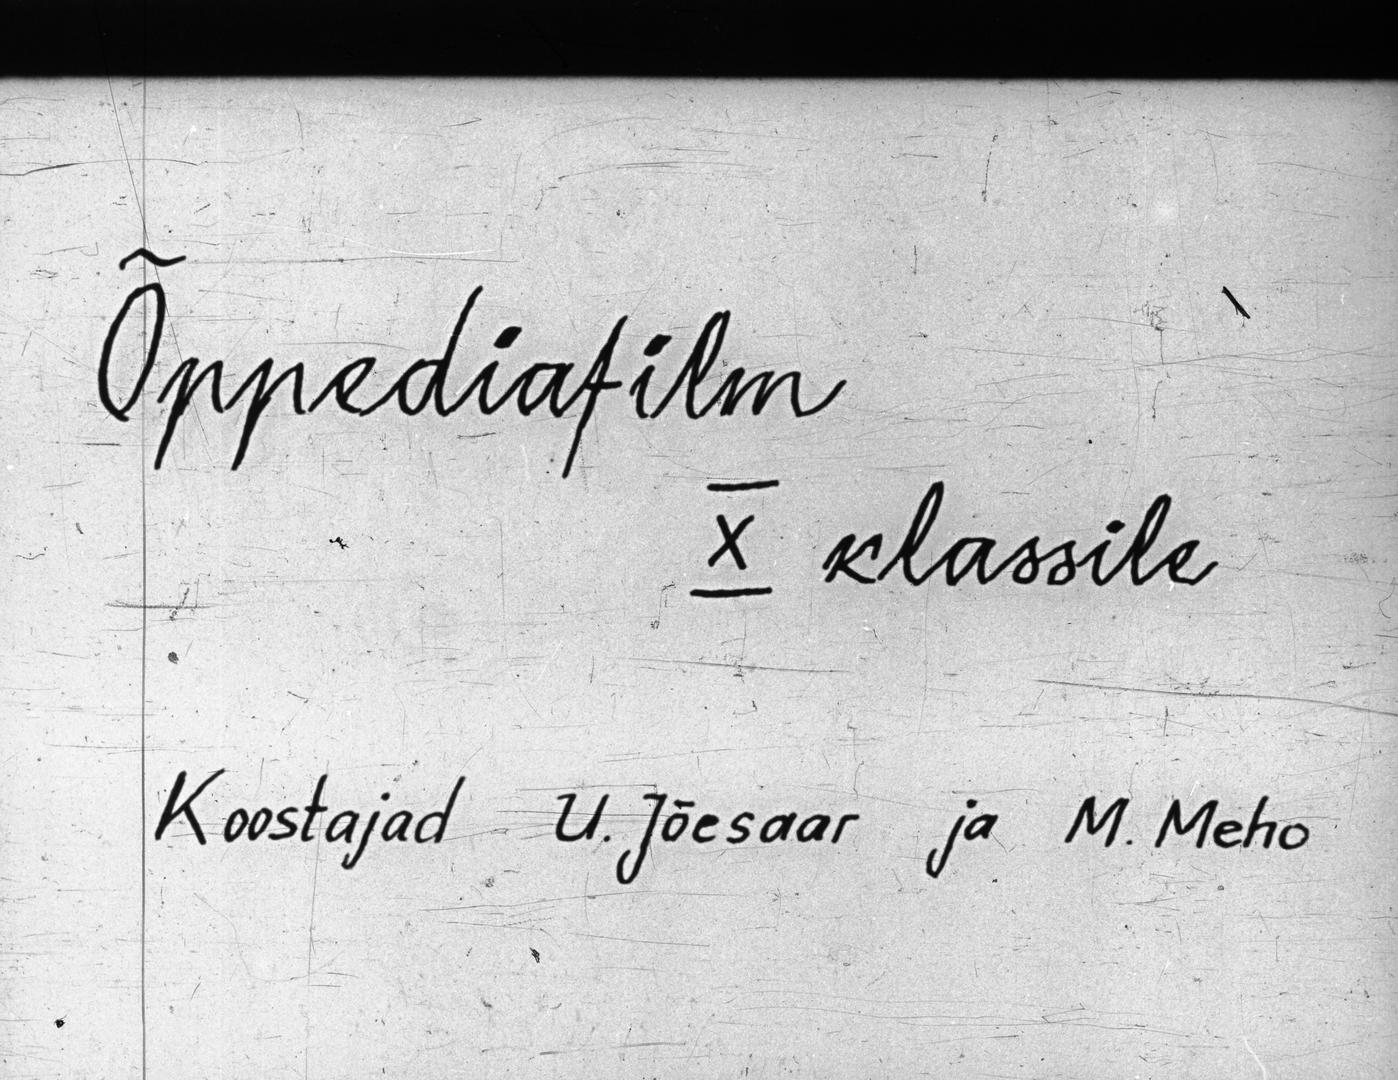 Õppediafilm
X klassile
Koostajad U. Jõesaar ja M. Meho